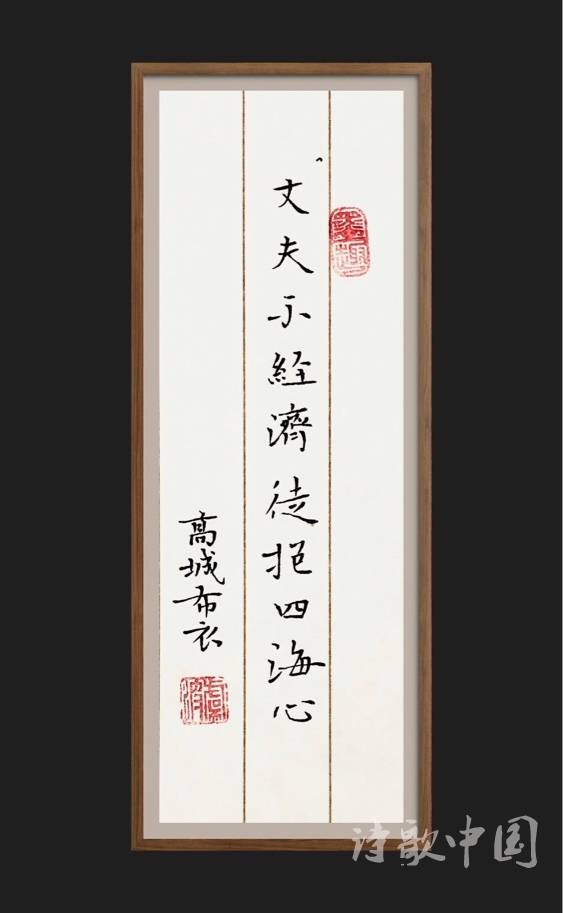 丈夫不經濟徒抱四海心
高城布衣
诗歌中国